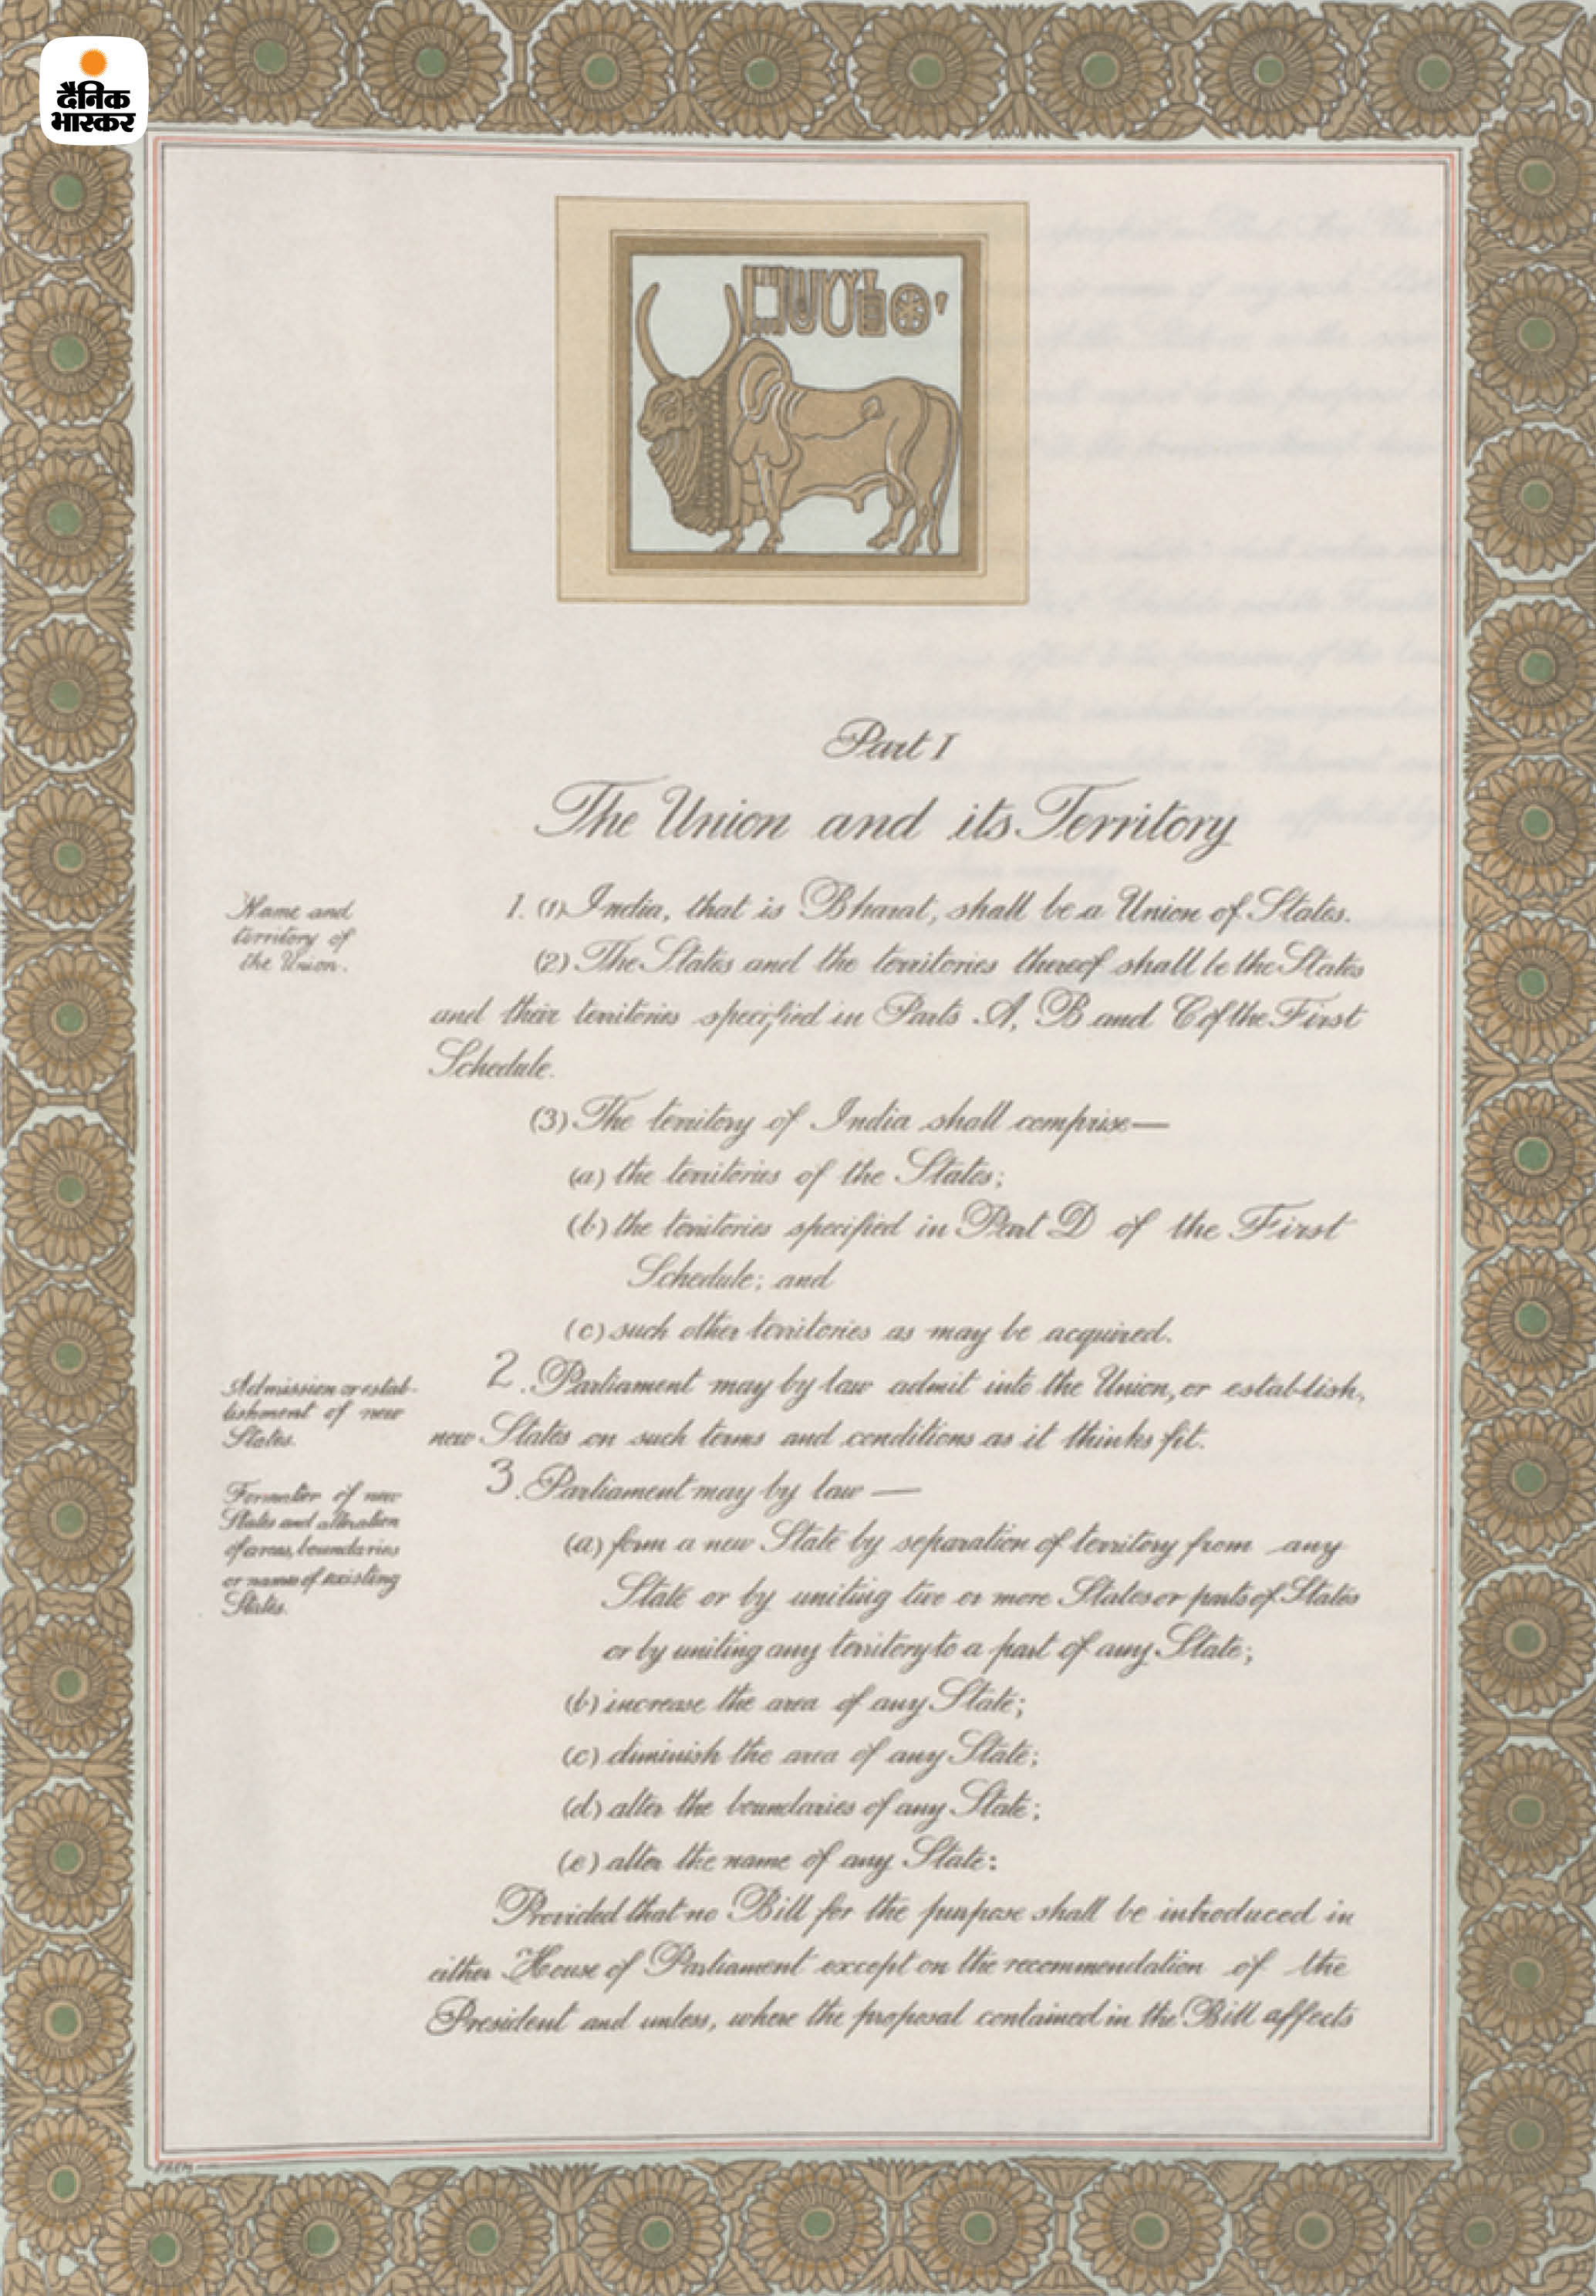 दैनिक
भास्कर
Part I
The Union and its Territory
Name and
territory of
the Union.
1. (1) India, that is Bharat, shall be a Union of States.
(2) The States and the territories thereof shall be the States
and their territories specified in Parts A, B and C of the First
Schedule.
(3) The territory of India shall comprise—
(a) the territories of the States;
(b) the territories specified in Part D of the First
Schedule; and
(c) such other territories as may be acquired.
Admission or estab-
lishment of new
States.
2. Parliament may by law admit into the Union, or establish,
new States on such terms and conditions as it thinks fit.
Formation of new
States and alteration
of areas, boundaries
or names of existing
States.
3. Parliament may by law —
(a) form a new State by separation of territory from any
State or by uniting two or more States or parts of States
or by uniting any territory to a part of any State;
(b) increase the area of any State;
(c) diminish the area of any State;
(d) alter the boundaries of any State;
(e) alter the name of any State:
Provided that no Bill for the purpose shall be introduced in
either House of Parliament except on the recommendation of the
President and unless, where the proposal contained in the Bill affects